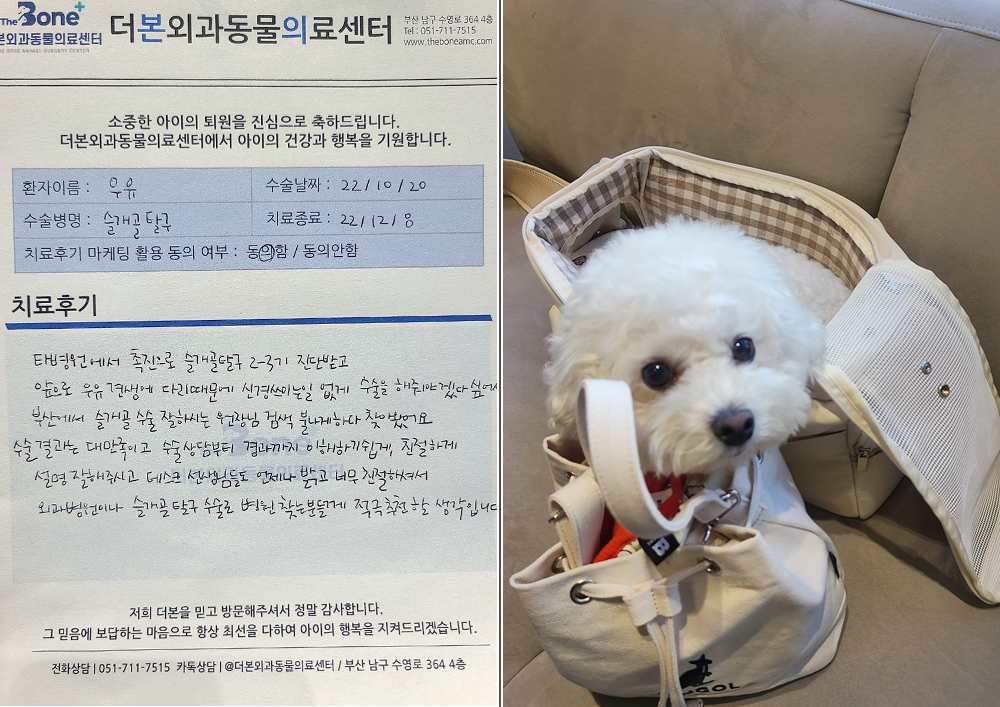 The Bone+
본외과동물의료센터
THE BONE ANIMAL SURGERY CENTER
더본외과동물의료센터
부산 남구 수영로 364 4층
Tel : 051-711-7515
www.theboneamc.com
소중한 아이의 퇴원을 진심으로 축하드립니다.
더본외과동물의료센터에서 아이의 건강과 행복을 기원합니다.
환자이름 : 우유
수술날짜 : 22/10/20
수술병명 : 슬개골탈구
치료종료 : 22/12/8
치료후기 마케팅 활용 동의 여부 : 동의함 / 동의안함
치료후기
타병원에서 촉진으로 슬개골탈구 2-3기 진단받고
앞으로 우유 견생에 다리때문에 신경쓰이는일 없게 수술을 해주야겠다 싶어서
부산에서 슬개골 수술 잘하시는 원장님 검색 불나게하다 찾아왔어요
수술결과는 대만족이고 수술상담부터 경과까지 이해하기쉽게, 친절하게
설명 잘해주시고 데스크 선생님들도 언제나 밝고 너무 친절하셔서
외과병원이나 슬개골탈구 수술로 병원 찾는분들께 적극추천할 생각입니다
저희 더본을 믿고 방문해주셔서 정말 감사합니다.
그 믿음에 보답하는 마음으로 항상 최선을 다하여 아이의 행복을 지켜드리겠습니다.
전화상담 | 051-711-7515 카톡상담 | @더본외과동물의료센터 / 부산 남구 수영로 364 4층